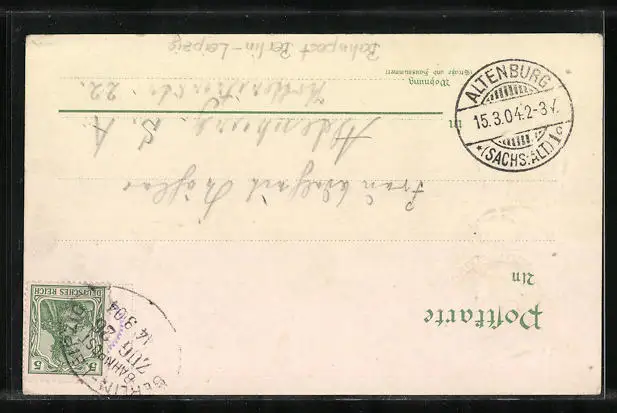 Postkarte
An
Frau
in
Altenburg S. A.
Wohnung
(Straße und Hausnummer)
22.
Bahnpost Berlin-Leipzig
ALTENBURG
15.3.04.2-3
*(SACHS:ALT.)1c
DEUTSCHES REICH
5
5
BERLIN-LEIPZIG
BAHNPOST
ZUG 26
14 3 04